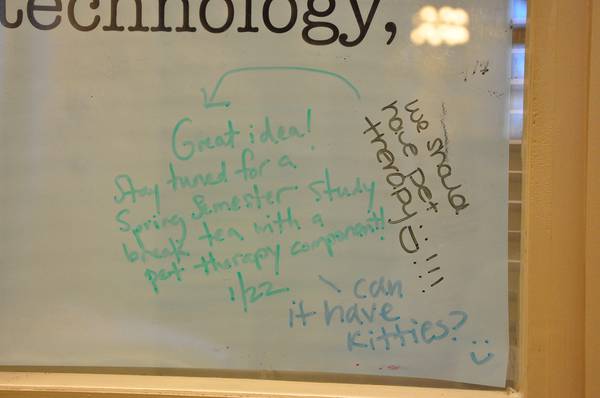 technology,
we should
have pet
therapy!!!
Great idea!
Stay tuned for a
Spring Semester study
break tea with a
pet therapy component!
1/22
can
it have
kitties?